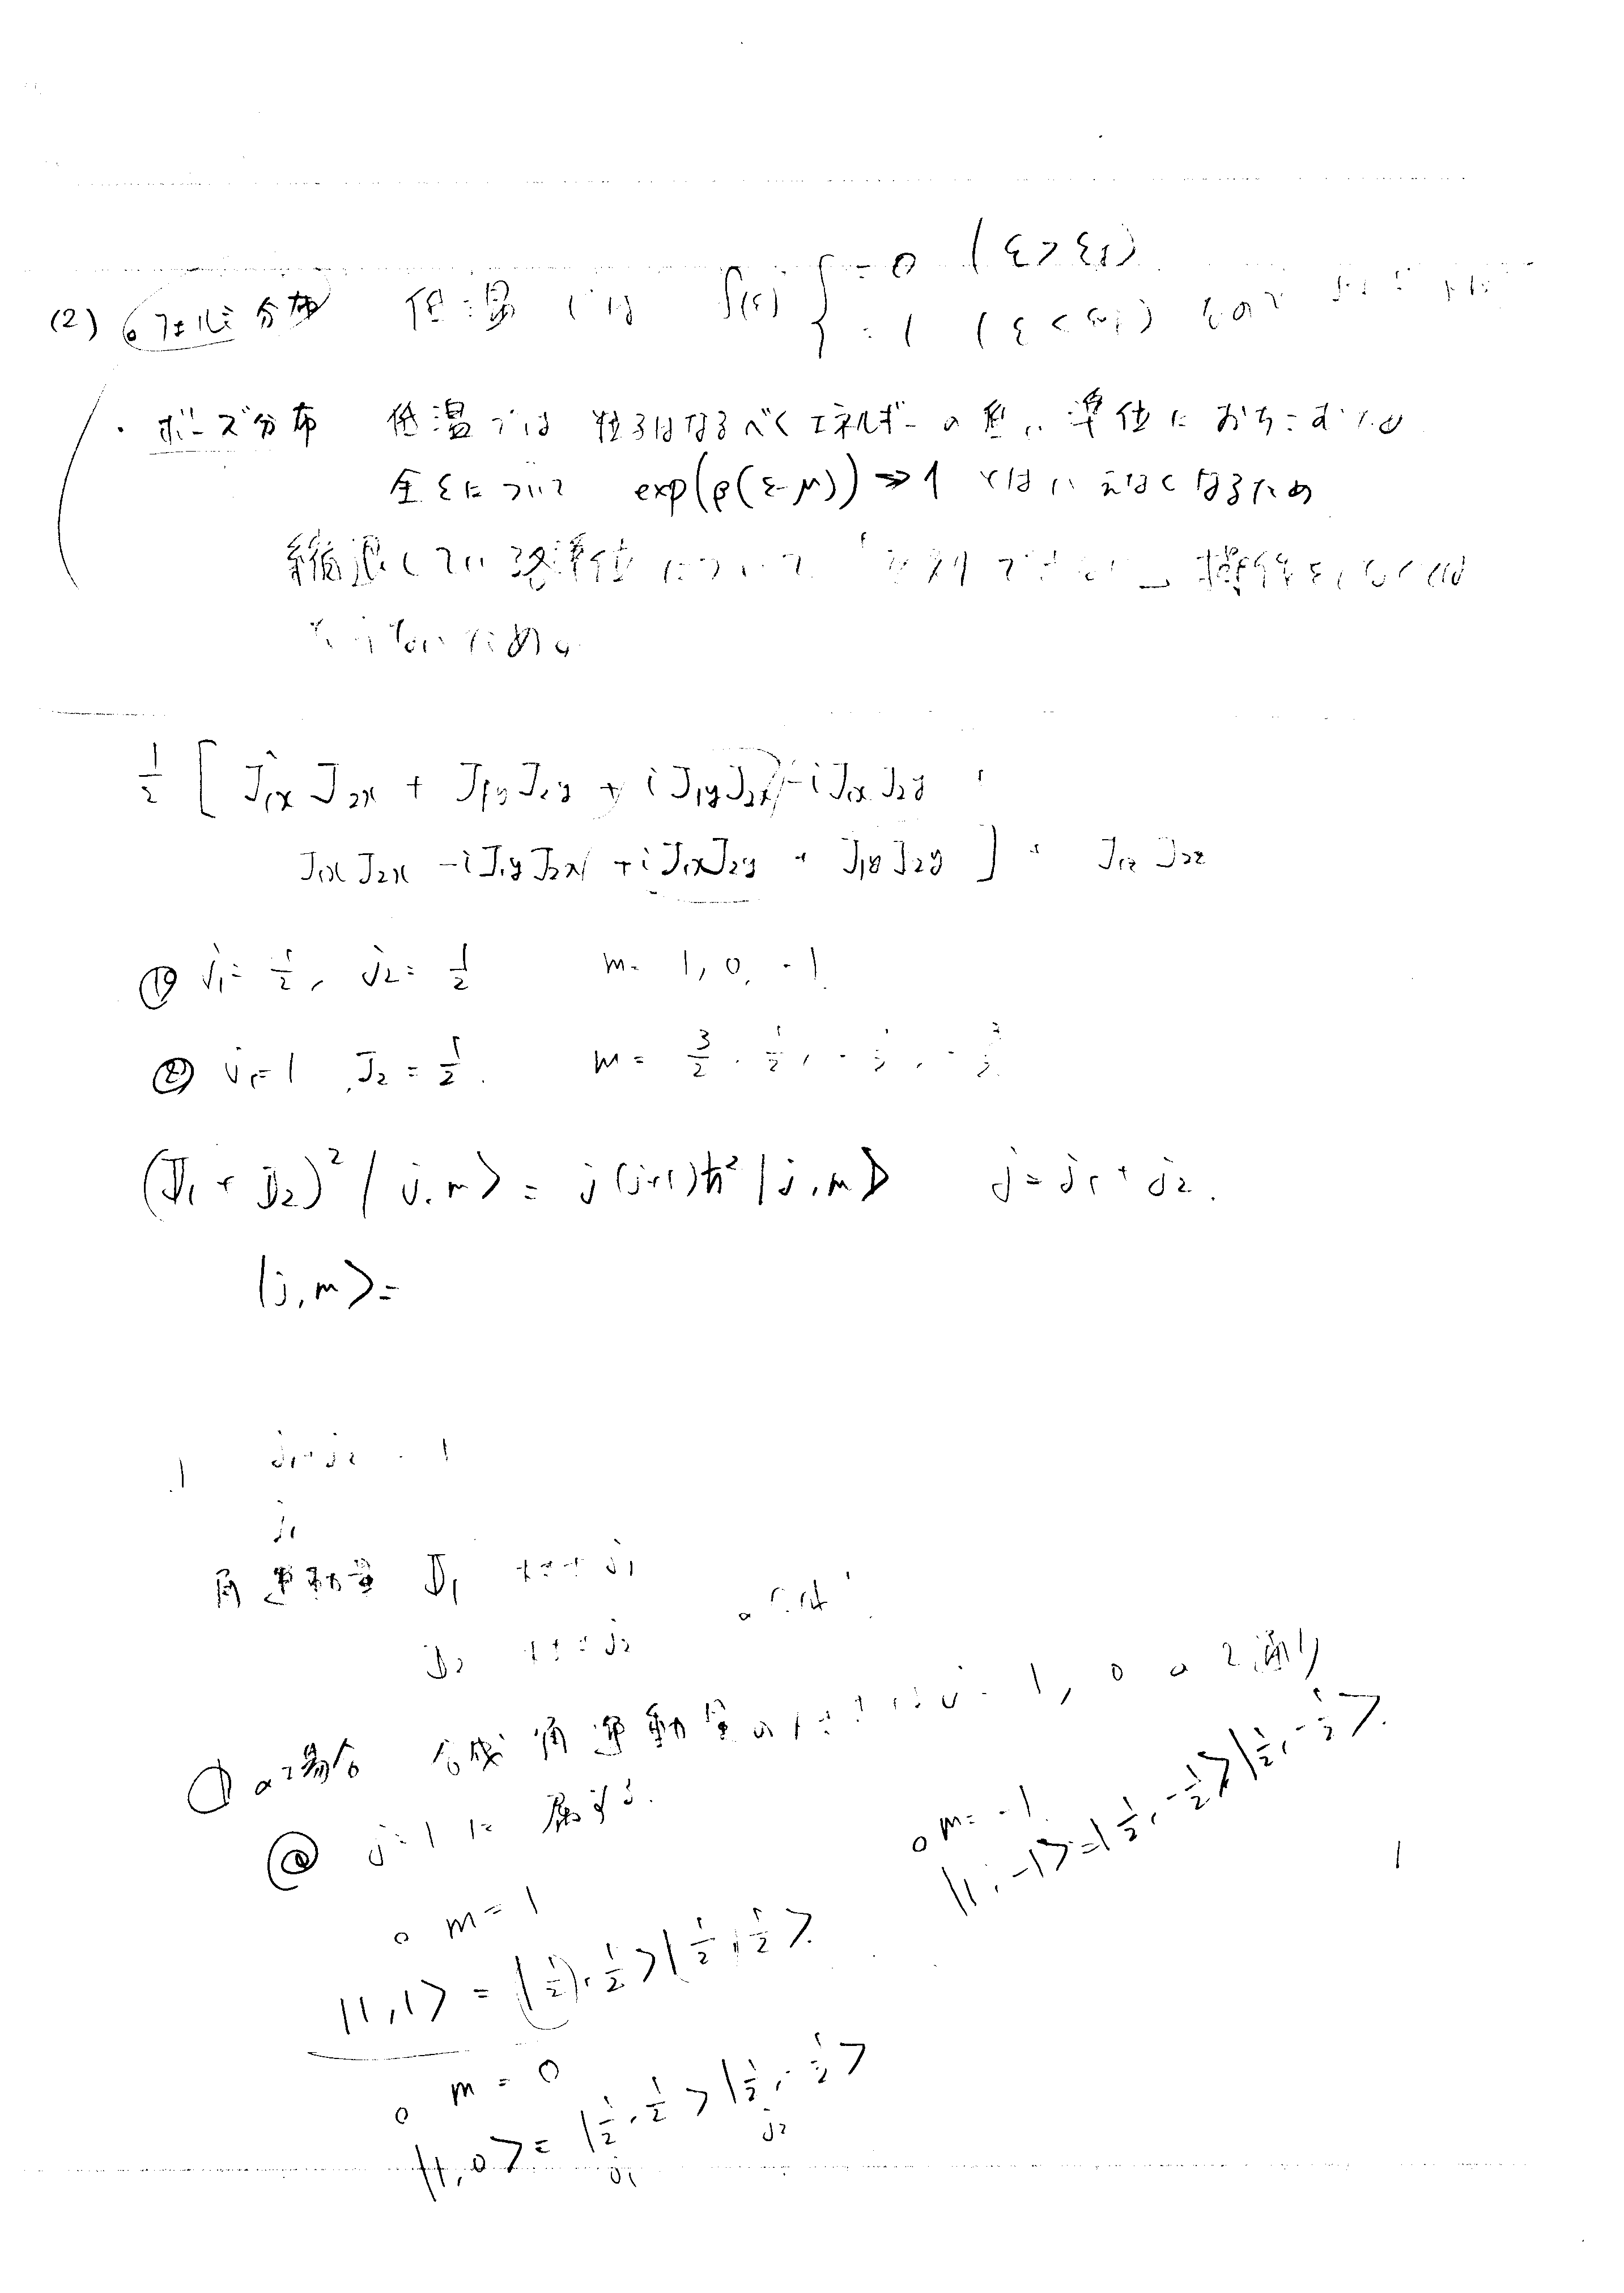 (2) 。フェルミ分布 低温では f(ε) { = 0 (ε > εf)
= 1 (ε < εf)
・ボーズ分布 低温では 粒子はなるべくエネルギーの低い準位におちこむため
全εについて exp(β(ε-μ)) ≫ 1 とはいえなくなるため
縮退している準位について
ないため。
1/2 [ J1x J2x + J1y J2y + i J1y J2x - i J1x J2y +
J1x J2x - i J1y J2x + i J1x J2y + J1y J2y ] + J1z J2z
① j1 = 1/2, j2 = 1/2 m = 1, 0, -1
② j1 = 1, J2 = 1/2. m = 3/2, 1/2, -1/2, -3/2
(J1 + J2)² |j, m> = j(j+1)ħ² |j, m> j = j1 + j2.
|j, m> =
j1+j2 - 1
j1
角運動量 J1 大きさ j1
J2 大きさ j2
①の場合 合成角運動量の大きさは j = 1, 0 の2通り
ⓐ j = 1 に属する.
。m = 1
|1, 1> = |1/2, 1/2>|1/2, 1/2>.
。m = 0
|1, 0> = |1/2, 1/2>|1/2, -1/2>
j1 j2
。m = -1.
|1, -1> = |1/2, -1/2>|1/2, -1/2>.